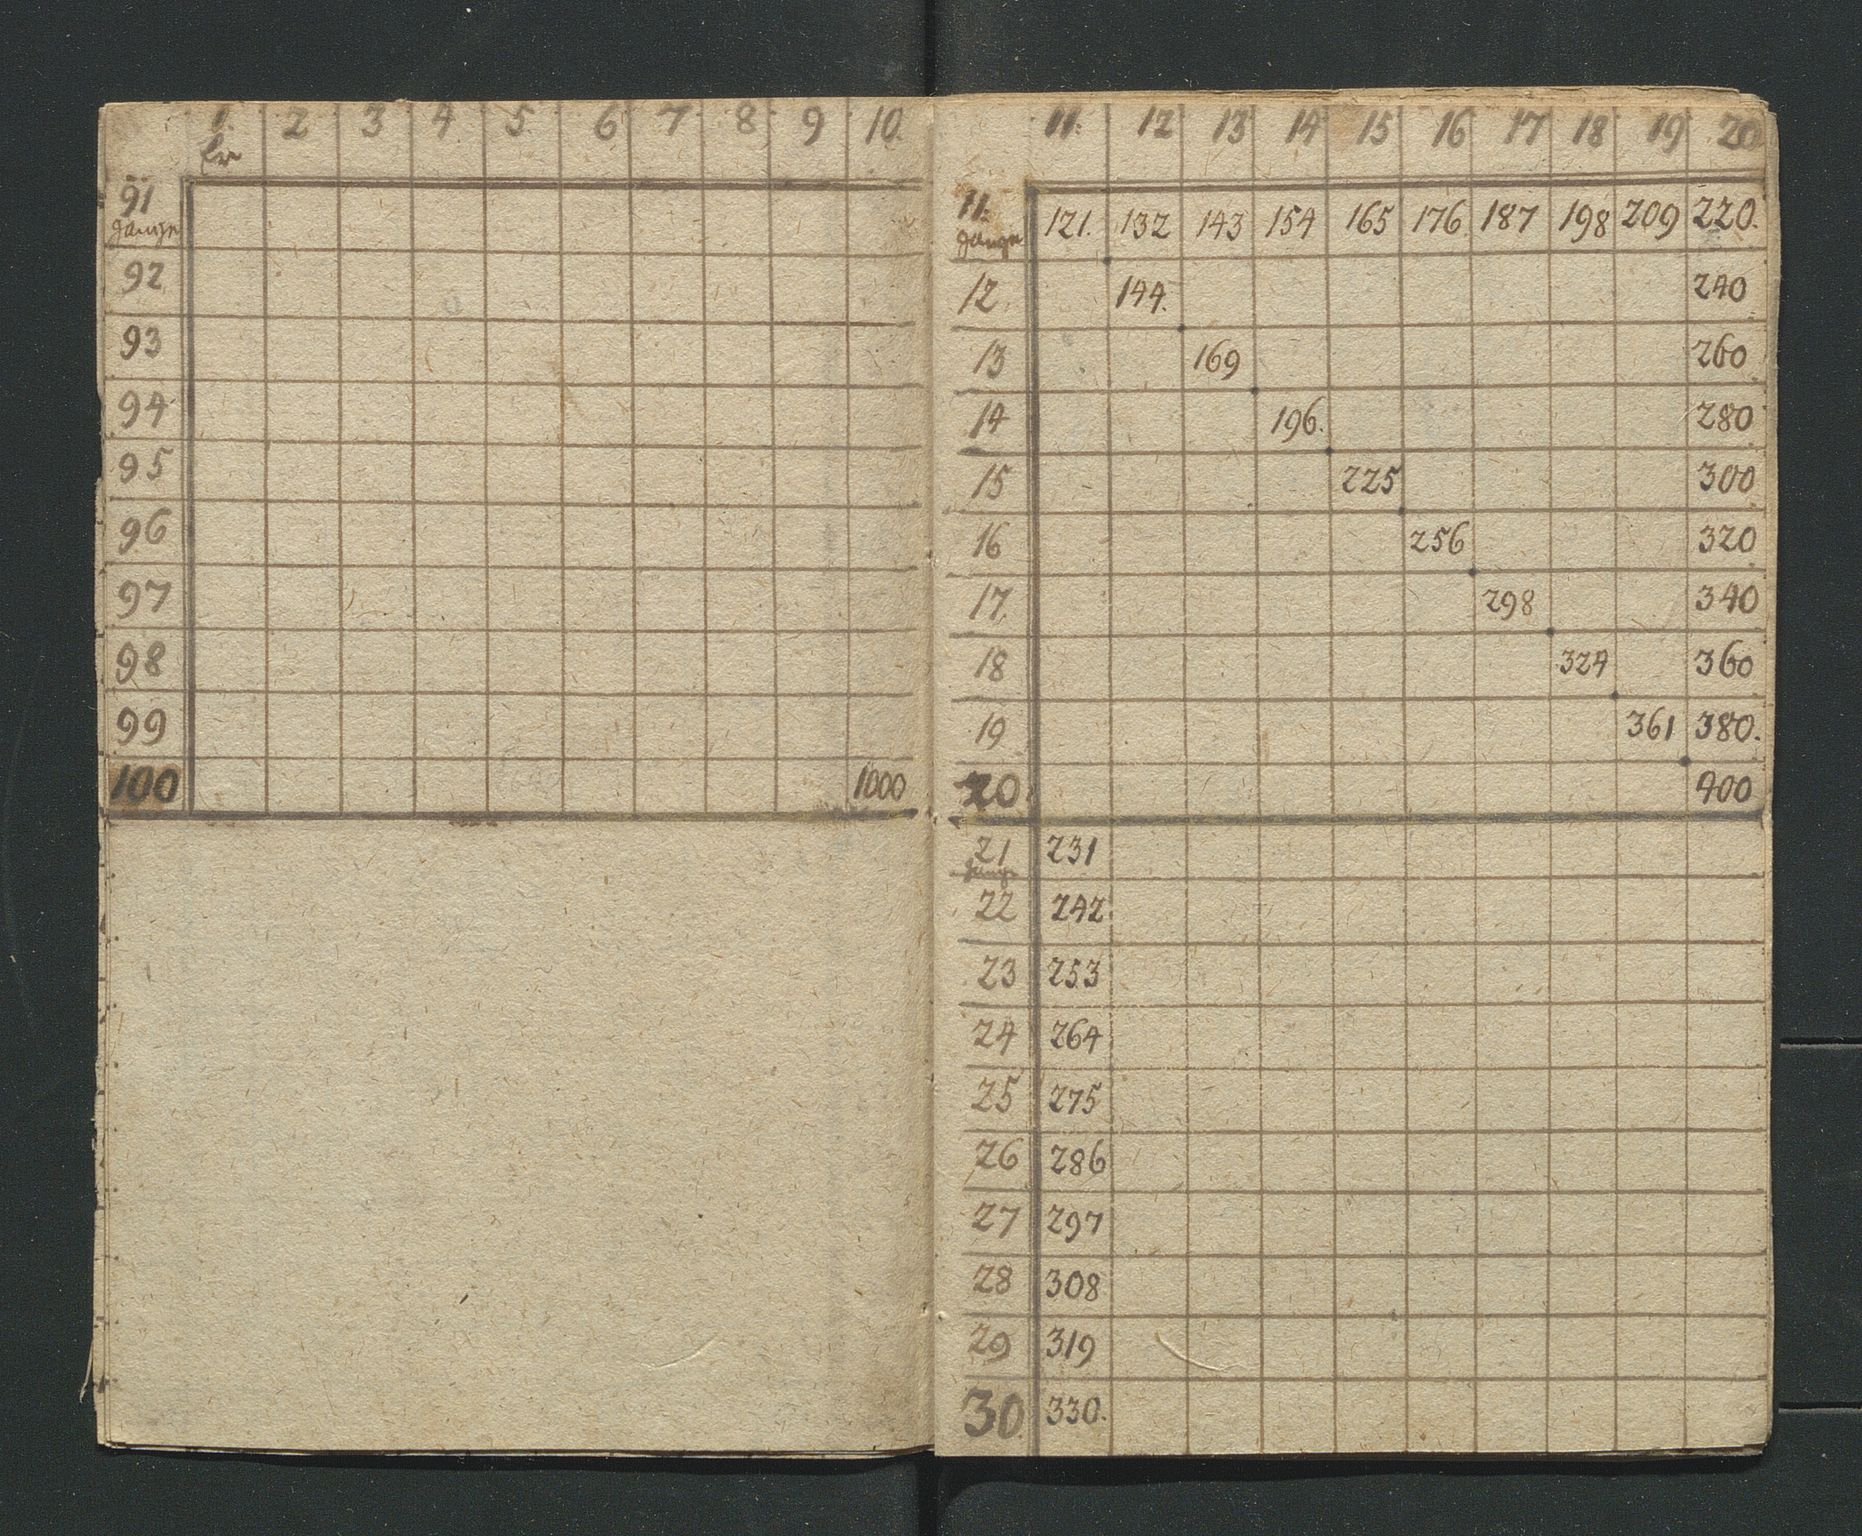 1. 2 3 4 5 6 7 8 9 10.
er
91
gange
92
93
94
95
96
97
98
99
100 1000
11. 12 13 14 15 16 17 18 19 20
11. 121. 132 143 154 165 176 187 198 209 220.
gange
12 144. 240
13 169 260
14 196. 280
15 225 300
16 256 320
17 298 340
18 324 360
19 361 380.
20 400
21 231
gange
22 242
23 253
24 264
25 275
26 286
27 297
28 308
29 319
30 330.